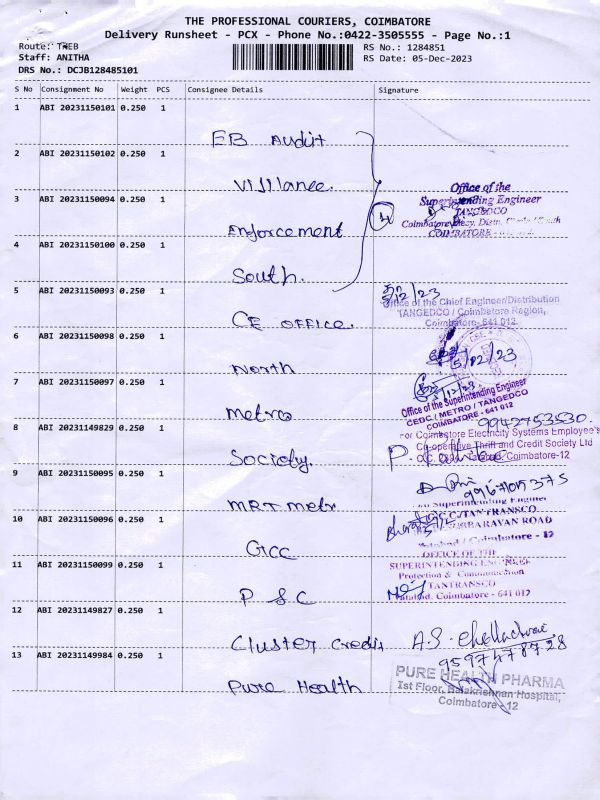 THE PROFESSIONAL COURIERS, COIMBATORE
Delivery Runsheet - PCX - Phone No.:0422-3505555 - Page No.:1
Route: TNEB
RS No.: 1284851
Staff: ANITHA
RS Date: 05-Dec-2023
DRS No.: DCJB128485101
S No Consignment No Weight PCS Consignee Details Signature
1 ABI 20231150101 0.250 1
EB Audit
2 ABI 20231150102 0.250 1
Vijilance.
3 ABI 20231150094 0.250 1
Enforcement
4 ABI 20231150100 0.250 1
South.
Office of the
Superintending Engineer
TANGEDCO
COIMBATORE
5 ABI 20231150093 0.250 1
CE OFFICE.
5/12/23
Office of the Chief Engineer/Distribution
TANGEDCO / Coimbatore Region,
Coimbatore- 641 012.
6 ABI 20231150098 0.250 1
North
5/12/23
7 ABI 20231150097 0.250 1
Metro
Office of the Superintending Engineer
CEDC / METRO / TANGEDCO
COIMBATORE - 641 012
8 ABI 20231149829 0.250 1
Society.
9942753530.
For Coimbatore Electricity Systems Employee's
Co-operative Thrift and Credit Society Ltd
Coimbatore-12
9 ABI 20231150095 0.250 1
MRT metr
10 ABI 20231150096 0.250 1
GCC
Superintending Engineer
TANTRANSCO
ROAD
Coimbatore - 12
11 ABI 20231150099 0.250 1
P & C
OFFICE OF THE
SUPERINTENDING ENGINEER
Protection & Communication
TANTRANSCO
Coimbatore - 641 012
12 ABI 20231149827 0.250 1
Cluster Credit
9597478728
13 ABI 20231149984 0.250 1
Pure Health
PURE HEALTH PHARMA
1st Floor, Balakrishnan Hospital,
Coimbatore -12